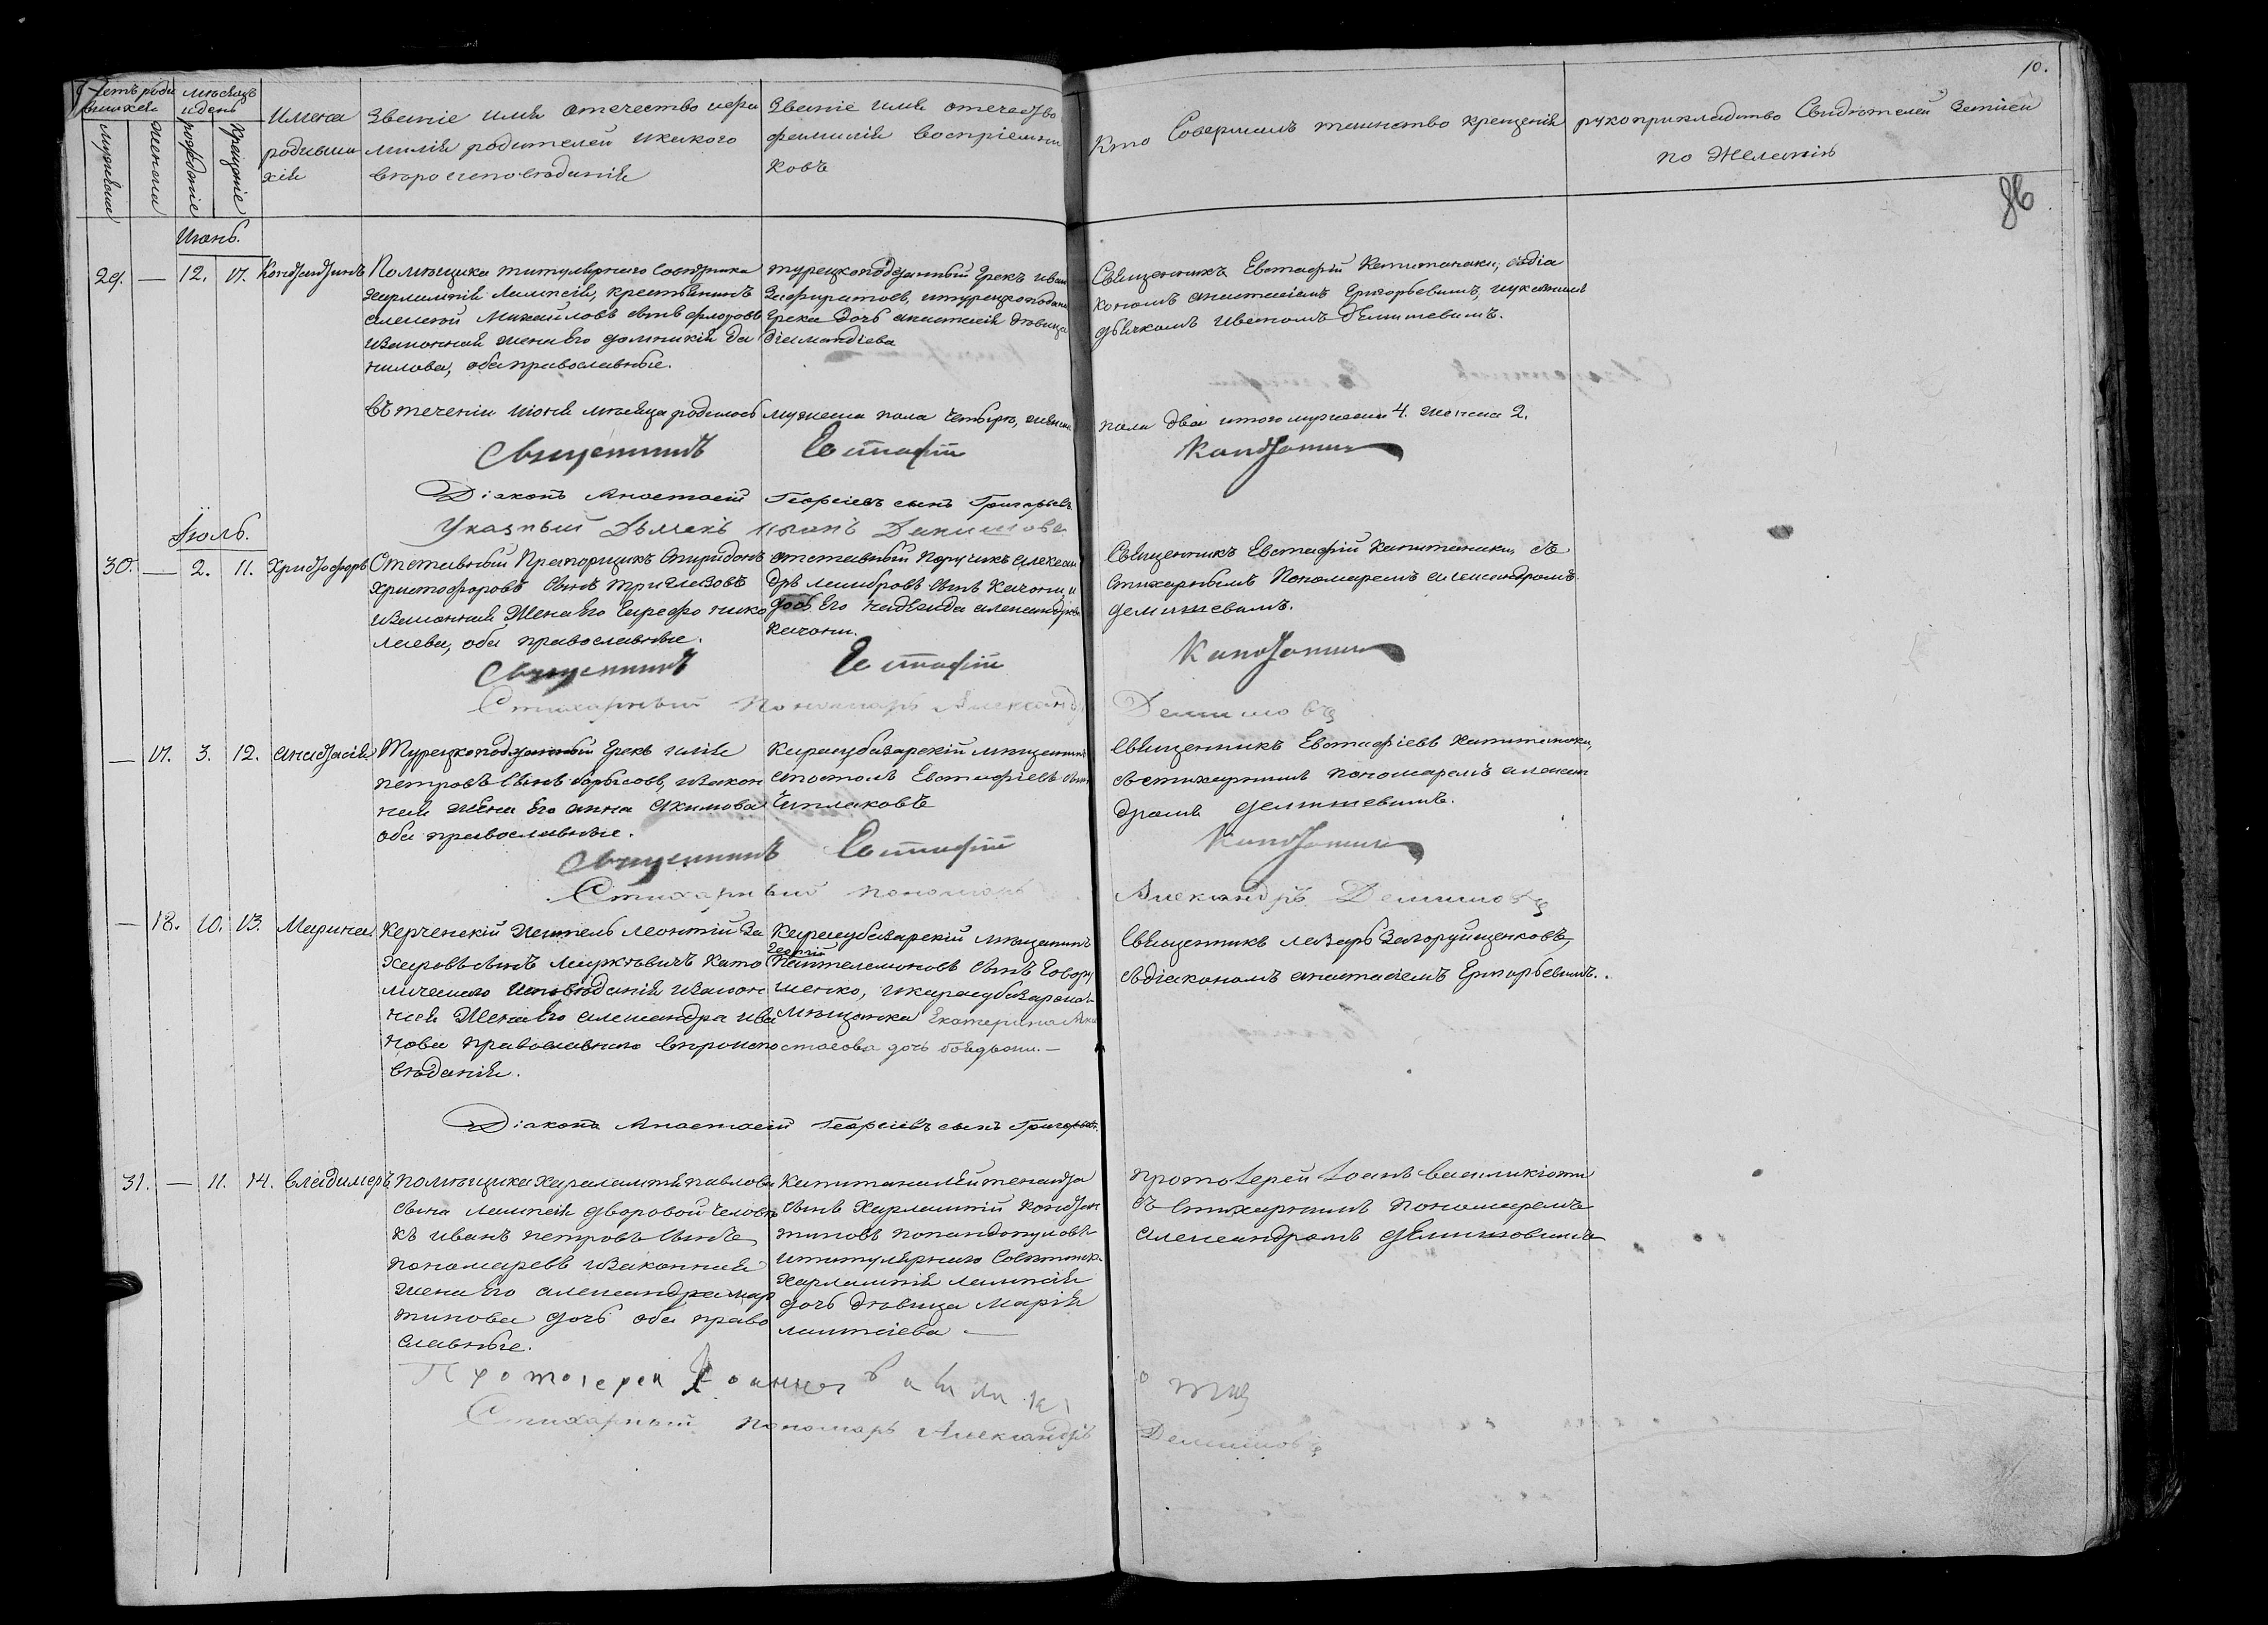 10.
86
Счетъ роди
вшихся
мужеска
женска
мѣсяцъ
и день
рожденіе
Крещеніе
Имена
родивши
хся
Званіе имя отечество и фа
милія родителей и какого
вѣроисповѣданія
Званіе имя отечество
фамилія восприемни
ковъ
Кто Совершалъ таинство крещенія
рукоприкладство Свидѣтелей записи
по Желанію
Июнь.
29. — 12. 17. Константинъ
Помѣщика титулярного Советника
Харлампія Лампсія, крестьянинъ
Алексей Михайловъ сынъ Флоровъ
изаконная жена Его домникія Да
нилова, оба православные.
турецкоподданный Грекъ Иван
Зафиратовъ, итурецкоподанн
Грека дочь анастасія дѣвица
Діамандіева
Священникъ Евстафій Капитанаки, съдіа
кономъ Анастасіемъ Григорьевымъ, иуказнымъ
дьячкомъ Иваномъ Демишевымъ.
Въ теченіи июня мѣсяца родилось мужеска пола Четыре, женска
пола два итого мужеска 4. женска 2.
Священникъ Евстафій
Капитанаки
Діаконъ Анастасій Георгіевъ сынъ Григорьевъ
Указный Дьячекъ Иванъ Демишовъ
Іюль.
30. — 2. 11. Христофоръ
Отставный Прапорщикъ Спиридонъ
Христофоровъ Сынъ Триглазовъ
изаконная Жена Его Ефросинія Нико
лаева, оба православные.
отставный Поручикъ Алексан
дръ Ламбровъ сынъ Качони, и
дочь Его Надежда александрова
Качони.
Священникъ Евстафій Капитанаки, съ
Стихарнымъ Пономаремъ александромъ
демишевымъ.
Священникъ Евстафій
Капитанаки
Стихарный Пономарь Александръ
Демишовъ
— 17. 3. 12. Анастасія
Турецкоподданный Грекъ Илія
Петровъ Сынъ Борисовъ, изакон
ная жена Его анна Акимова
оба православные.
Карасубазарскій мѣщанинъ
апостолъ Евстафіевъ сынъ
Чиплаковъ
Священникъ Евстафіевъ Капитанаки,
състихарнымъ пономаремъ алексан
дромъ демишевымъ.
Священникъ Евстафій
Капитанаки
Стихарный пономарь
Александръ Демишовъ
— 18. 10. 13. Марина
Керченскій житель Леонтій За
харовъ сынъ Марковичъ Като
лическаго Исповѣданія изакон
ная Жена Его александра Ива
нова православнаго вѣроиспо
вѣданія.
Карасубазарскій мѣщанинъ
Георгій
Пантелемоновъ сынъ Говору
щенко, икарасубазарская
мѣщанка Екатерина Ана
стасова дочь
Священникъ Лазарь Загоруйщенковъ,
съдіакономъ анастасіемъ Григорьевымъ.
Діаконъ Анастасій Георгіевъ сынъ Григорьевъ.
31. — 11. 14. Владимеръ
Помѣщика Харалампія павлова
сына Лампсія дворовой Челове
къ Иванъ Петровъ Сынъ
Пономаревъ изаконная
жена Его александра мар
тинова дочь оба право
славные.
Капитанилейтенанта
сынъ Харлампій Констан
тиновъ попандопуловъ
ититулярнаго Советника
Харлампія Лампсія
дочь дѣвица Марія
лампсіева —
Протоіерей Іоанъ Василикіоти
съ Стихарнымъ пономаремъ
александромъ демишовымъ
Протоіерей Іоаннъ Василикі
оти
Стихарный пономарь Александръ
Демишовъ